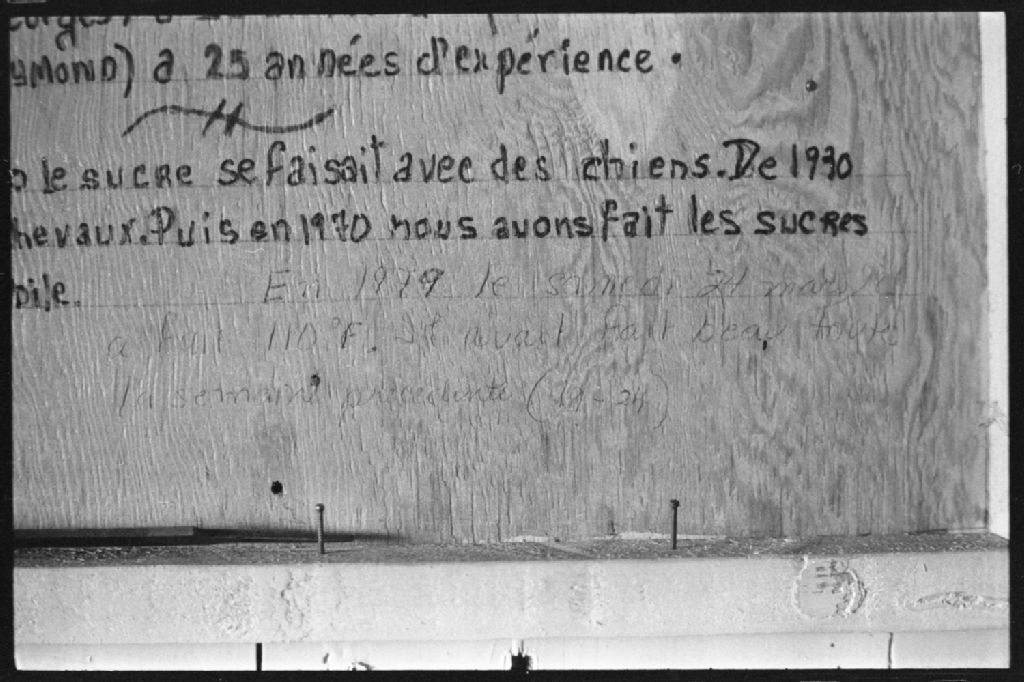 yMOND) a 25 années d'expérience.
le sucre se faisait avec des chiens. De 1930
hevaux. Puis en 1970 nous avons fait les sucres
bile. En 1979 le samedi 24 mars
a fait 110°F. Il avait fait beau toute
la semaine précédente (19-24)